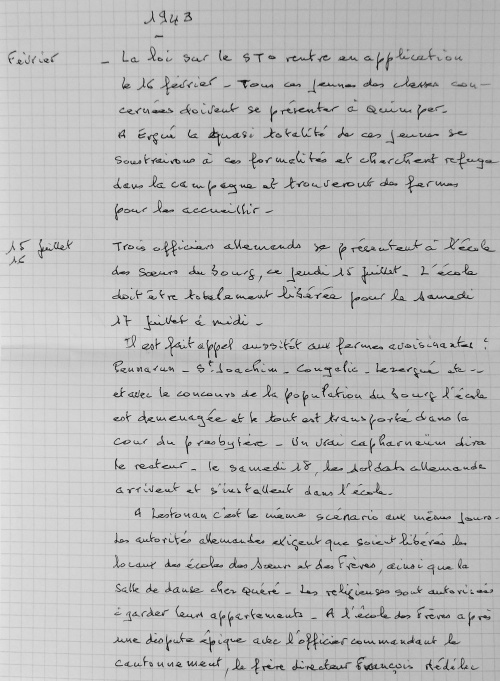 1943
Février - La loi sur le STO rentre en application
le 16 février - Tous ces jeunes des classes con-
cernées doivent se présenter à Quimper.
A Ergué la quasi totalité de ces jeunes se
soustrairons à ces formalités et cherchent refuge
dans la campagne et trouveront des fermes
pour les accueillir -
15 juillet Trois officiers allemands se présentent à l'école
16 des Sœurs du bourg, ce jeudi 15 juillet - L'école
doit être totalement libérée pour le samedi
17 juillet à midi -
Il est fait appel aussitôt aux fermes avoisinantes :
Pennarun - St Joachim - Congallic - Lezergué etc --
et avec le concours de la population du bourg l'école
est demenagée et le tout est transporté dans la
cour du presbytère - Un vrai capharnaüm dira
le recteur - le samedi 18, les soldats allemands
arrivent et s'installent dans l'école.
A Lestonan c'est le même scénario aux mêmes jours -
Les autorités allemandes exigent que soient libérés les
locaux des écoles des Sœurs et des Frères, ainsi que la
salle de danse chez Quéré - Les religieuses sont autorisées
à garder leurs appartements - A l'école des Frères après
une dispute épique avec l'officier commandant le
cantonnement, le frère directeur François Hédélec